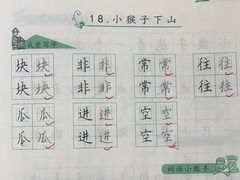 18.小猴子下山
我爱写字
块块 非非 常常 往往
块块 非非 常常 往往
瓜瓜 进进 空空
瓜瓜 进进 空空
词语小能手